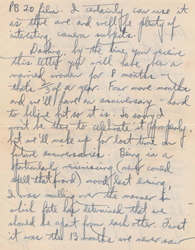 PB 20 film - I certainly can use it
as there are and will be plenty of
interesting camera subjects.
Darling, by the time you receive
this letter you will have been a
married woman for 8 months -
that's 2/3 of a year. Four more months
and we'll have an anniversary - hard
to believe but so it is. So sorry I
won't be there to celebrate it properly
but we'll make up for lost time on
future anniversaries. Being in a
reminiscing (never could
spell that word) mood last evening
I was mulling over the manner in
which fate has determined that we
should be apart from each other. First
it was the 13 months we never saw